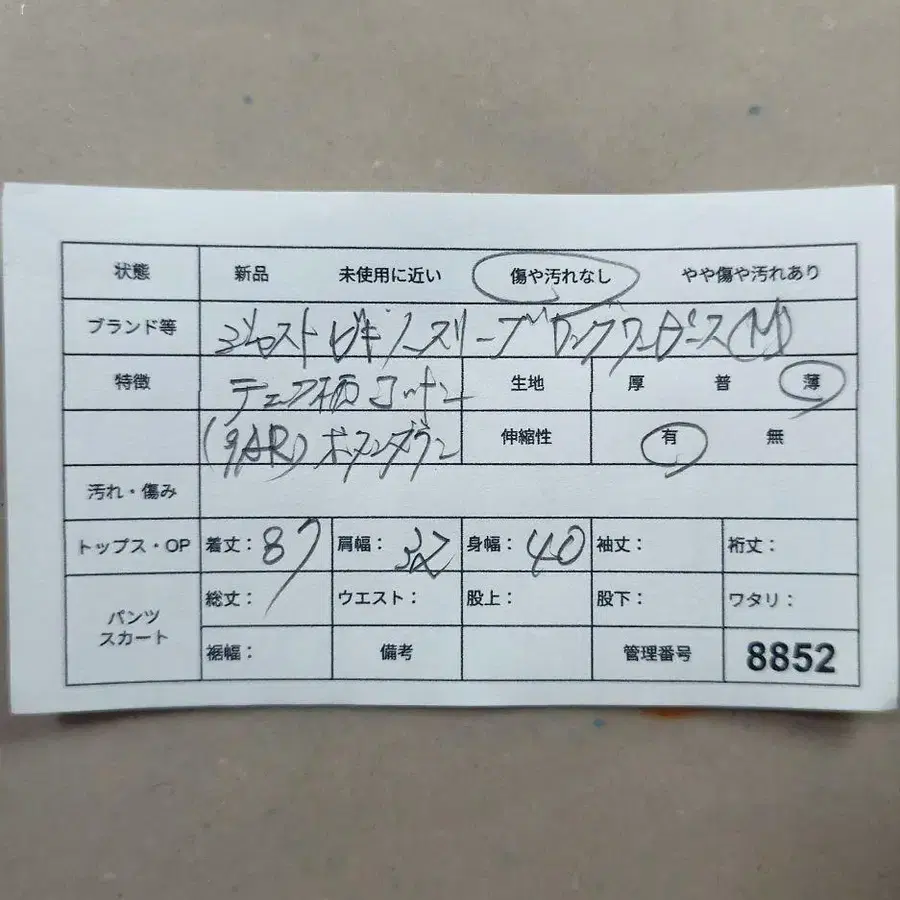 状態 新品 未使用に近い 傷や汚れなし やや傷や汚れあり
ブランド等 ジャストビギ ノースリーブ ロングワンピース (M)
特徴 チェック柄 コットン 生地 厚 普 薄
ボタンダウン 伸縮性 有 無
汚れ・傷み
トップス・OP 着丈: 87 肩幅: 32 身幅: 40 袖丈: 裄丈:
パンツ スカート 総丈: ウエスト: 股上: 股下: ワタリ:
裾幅: 備考 管理番号 8852